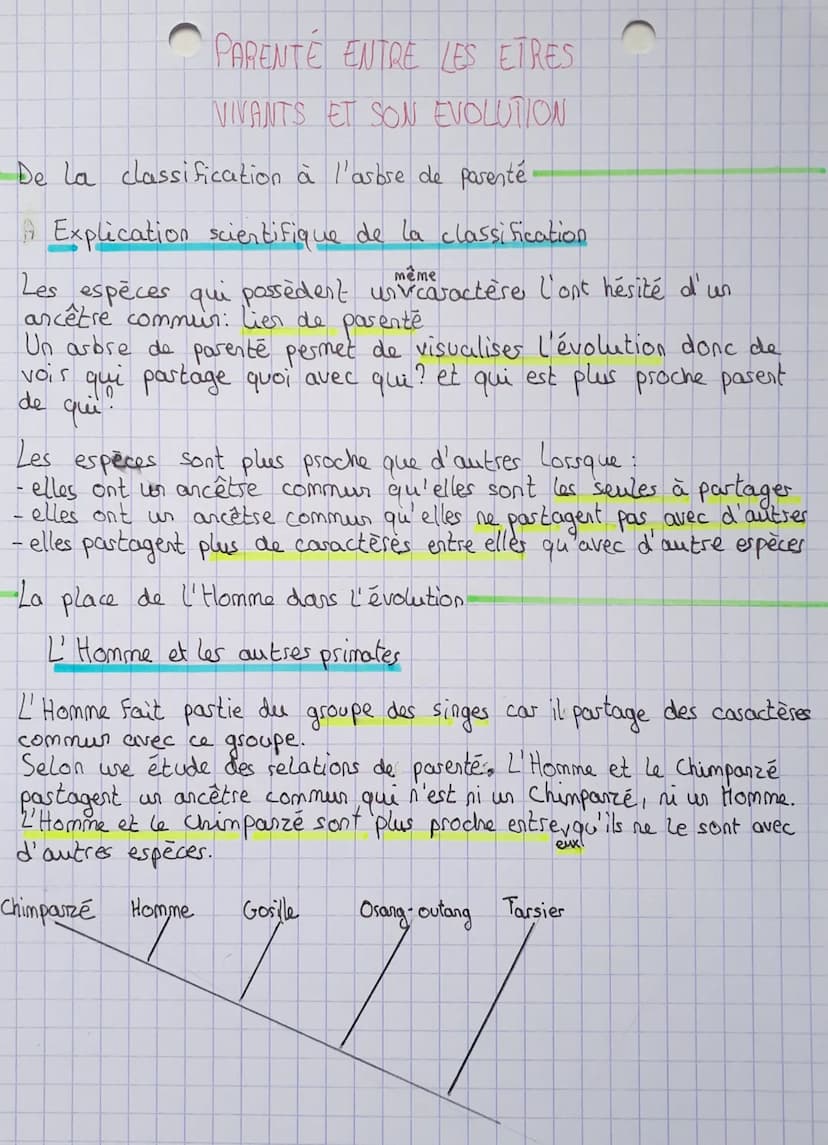 PARENTÉ ENTRE LES ETRES
VIVANTS ET SON EVOLUTION
De la classification à l'arbre de parenté
A Explication scientifique de la classification
Les espèces qui possèdent un même caractère l'ont hérité d'un
ancêtre commun: lien de parenté
Un arbre de parenté permet de visualiser l'évolution donc de
voir qui partage quoi avec qui? et qui est plus proche parent
de qui?
Les espèces sont plus proche que d'autres lorsque :
- elles ont un ancêtre commun qu'elles sont les seules à partager
- elles ont un ancêtre commun qu'elles ne partagent pas avec d'autres
- elles partagent plus de caractères entre elles qu'avec d'autre espèces
La place de l'Homme dans l'évolution
L'Homme et les autres primates
L'Homme fait partie du groupe des singes car il partage des caractères
commun avec ce groupe.
Selon une étude des relations de parenté, L'Homme et le Chimpanzé
partagent un ancêtre commun qui n'est ni un Chimpanzé, ni un Homme.
L'Homme et le chimpanzé sont plus proche entre eux qu'ils ne le sont avec
d'autres espèces.
Chimpanzé Homme Gorille Orang-outang Tarsier